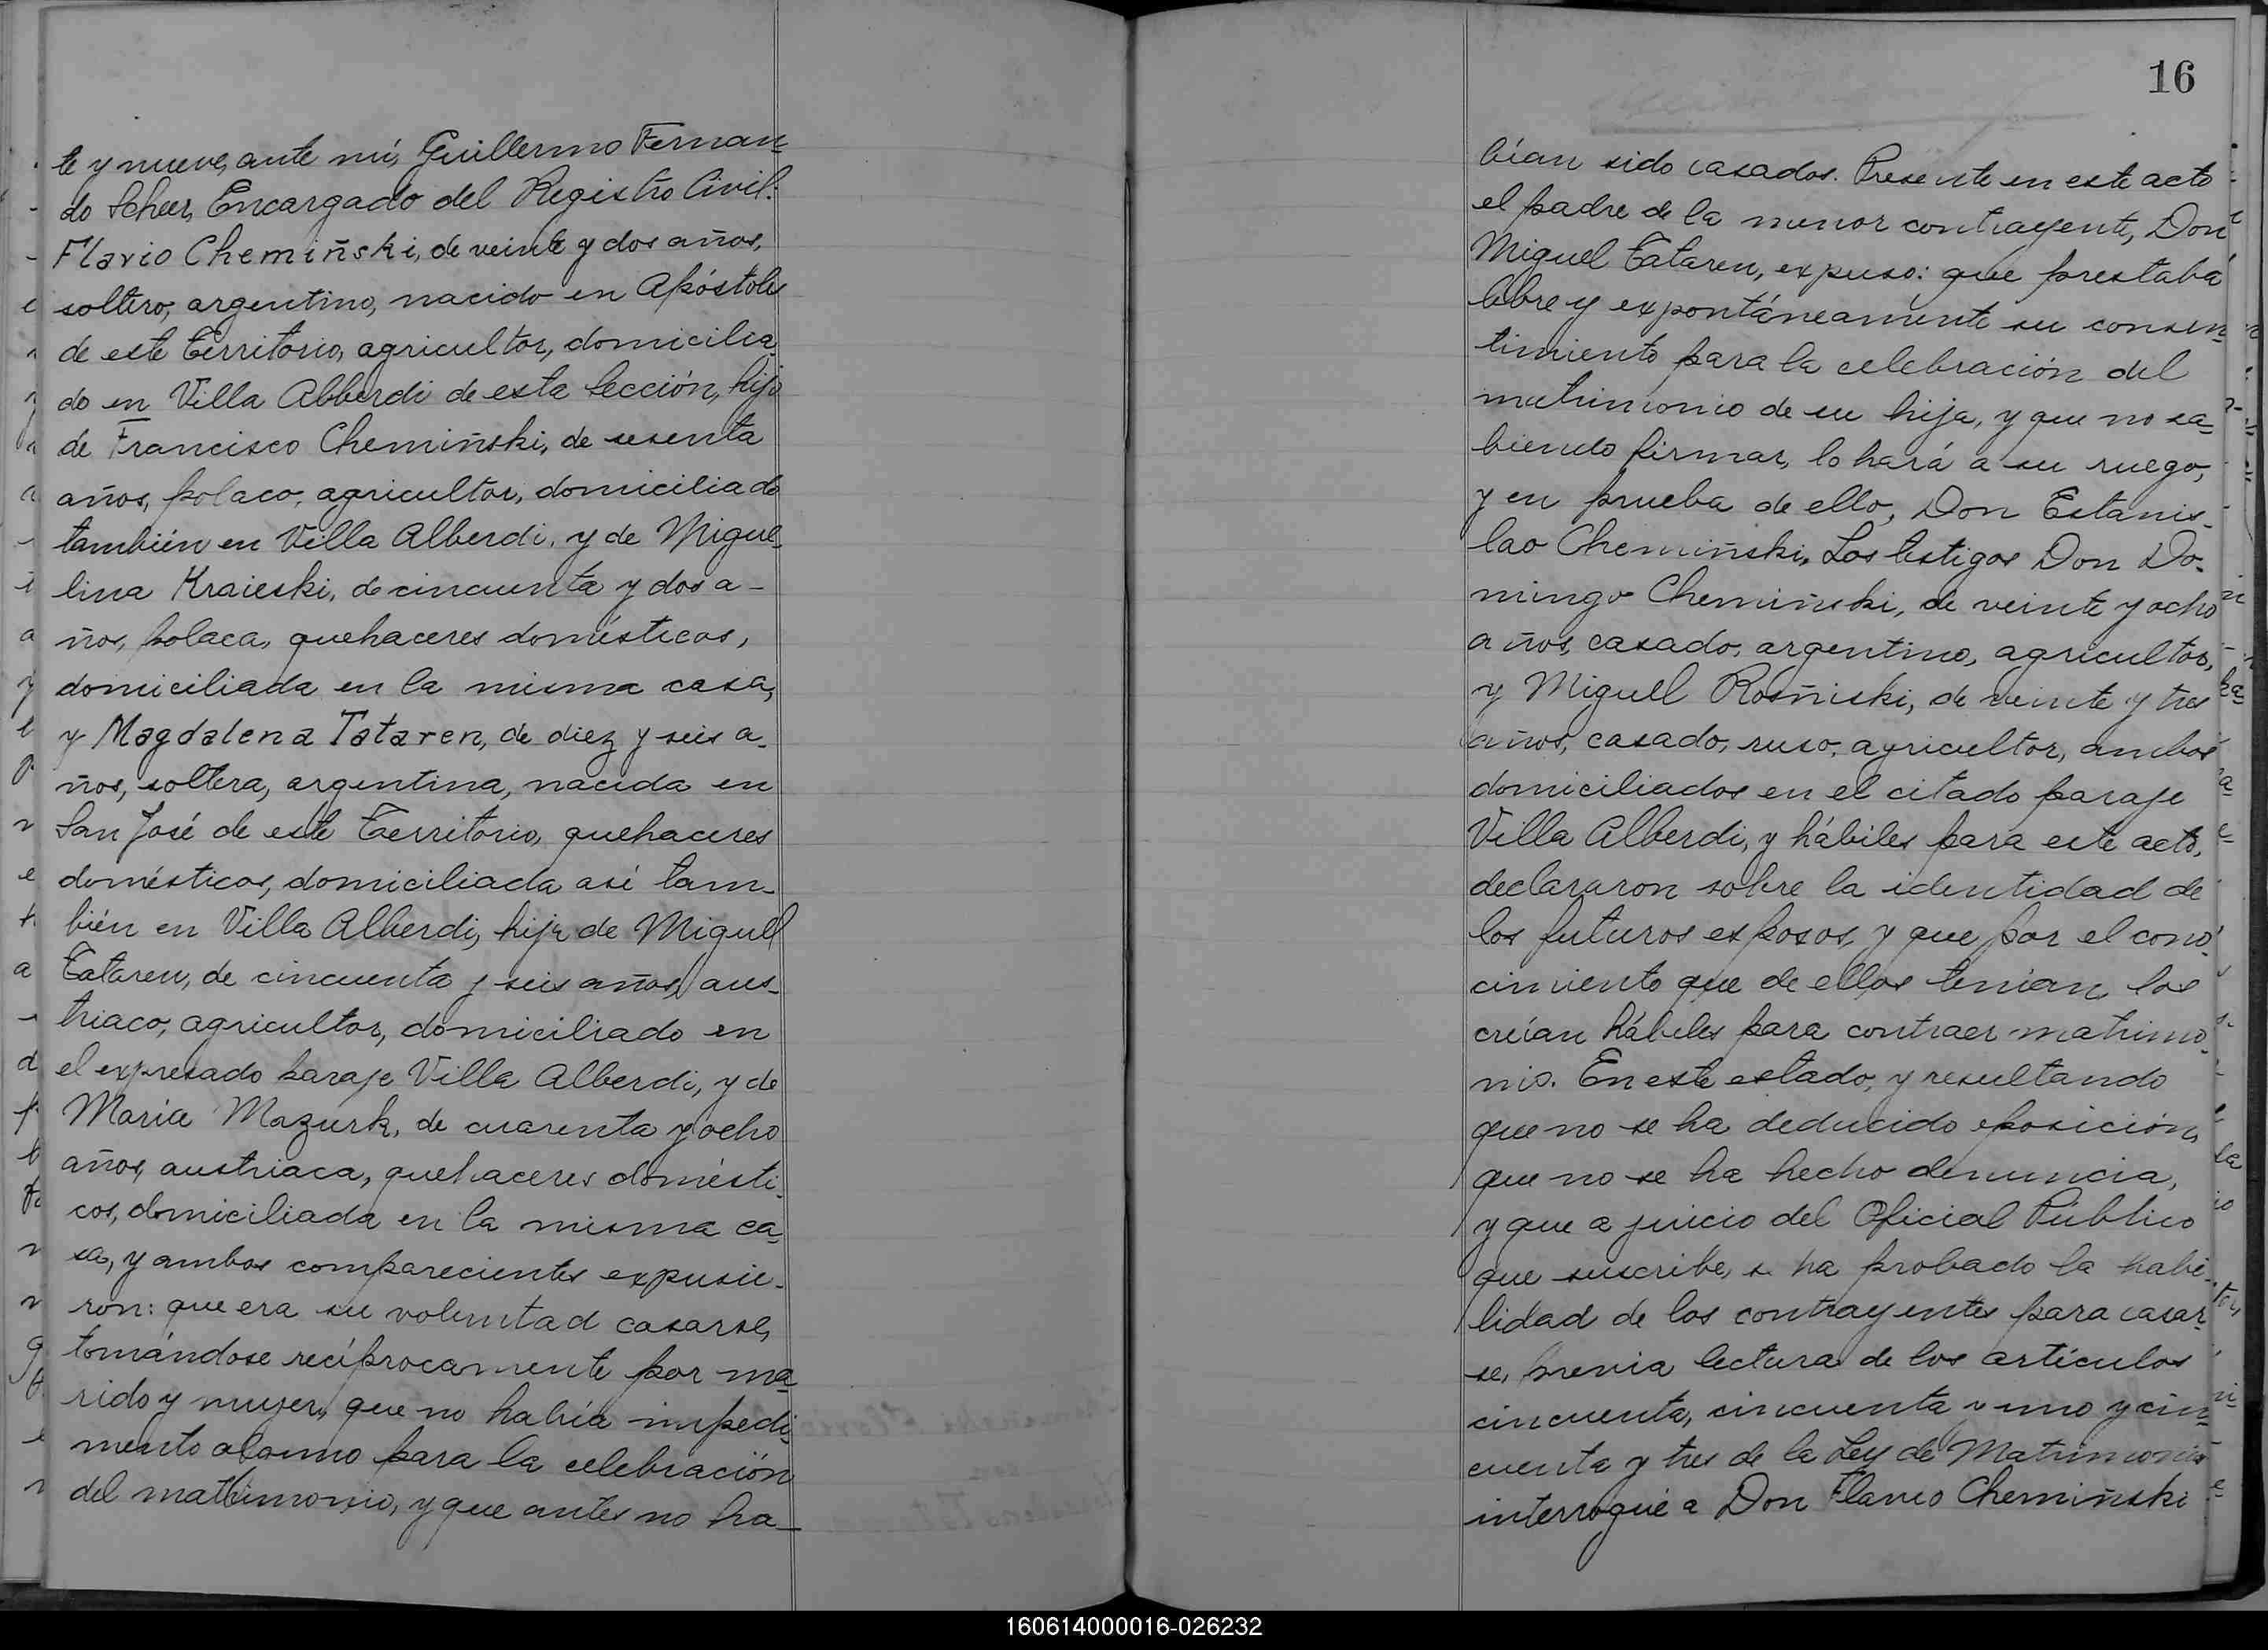 te y nueve, ante mí, Guillermo Fernan-
do Scheer, Encargado del Registro Civil:
Flavio Chemiñski, de veinte y dos años,
soltero, argentino, nacido en Apóstoles
de este Territorio, agricultor, domicilia-
do en Villa Alberdi de esta Sección, hijo
de Francisco Chemiñski, de sesenta
años, polaco, agricultor, domiciliado
también en Villa Alberdi, y de Migue-
lina Kraieski, de cincuenta y dos a-
ños, polaca, quehaceres domésticos,
domiciliada en la misma casa,
y Magdalena Tataren, de diez y seis a-
ños, soltera, argentina, nacida en
San José de este Territorio, quehaceres
domésticos, domiciliada así tam-
bién en Villa Alberdi, hija de Miguel
Tataren, de cincuenta y seis años, aus-
triaco, agricultor, domiciliado en
el expresado paraje Villa Alberdi, y de
Maria Mazurk, de cuarenta y ocho
años, austriaca, quehaceres domésti-
cos, domiciliada en la misma ca-
sa, y ambos comparecientes expusie-
ron: que era su voluntad casarse,
tomándose recíprocamente por ma-
rido y mujer, que no había impedi-
mento alguno para la celebración
del matrimonio, y que antes no ha-
16
bían sido casados. Presente en este acto
el padre de la menor contrayente, Don
Miguel Tataren, expuso: que prestaba
libre y expontáneamente su consen-
timiento para la celebración del
matrimonio de su hija, y que no sa-
biendo firmar, lo hará a su ruego,
y en prueba de ello, Don Estanis-
lao Chemiñski. Los testigos Don Do-
mingo Chemiñski, de veinte y ocho
años, casado, argentino, agricultor,
y Miguel Rosñiski, de veinte y tres
años, casado, ruso, agricultor, ambos
domiciliados en el citado paraje
Villa Alberdi, y hábiles para este acto,
declararon sobre la identidad de
los futuros esposos, y que por el cono-
cimiento que de ellos tenían, los
creían hábiles para contraer matrimo-
nio. En este estado, y resultando
que no se ha deducido oposición,
que no se ha hecho denuncia,
y que a juicio del Oficial Público
que suscribe, se ha probado la habi-
lidad de los contrayentes para casar-
se, previa lectura de los artículos
cincuenta, cincuenta y uno y cin-
cuenta y tres de la Ley de Matrimonio
interrogué a Don Flavio Chemiñski
160614000016-026232